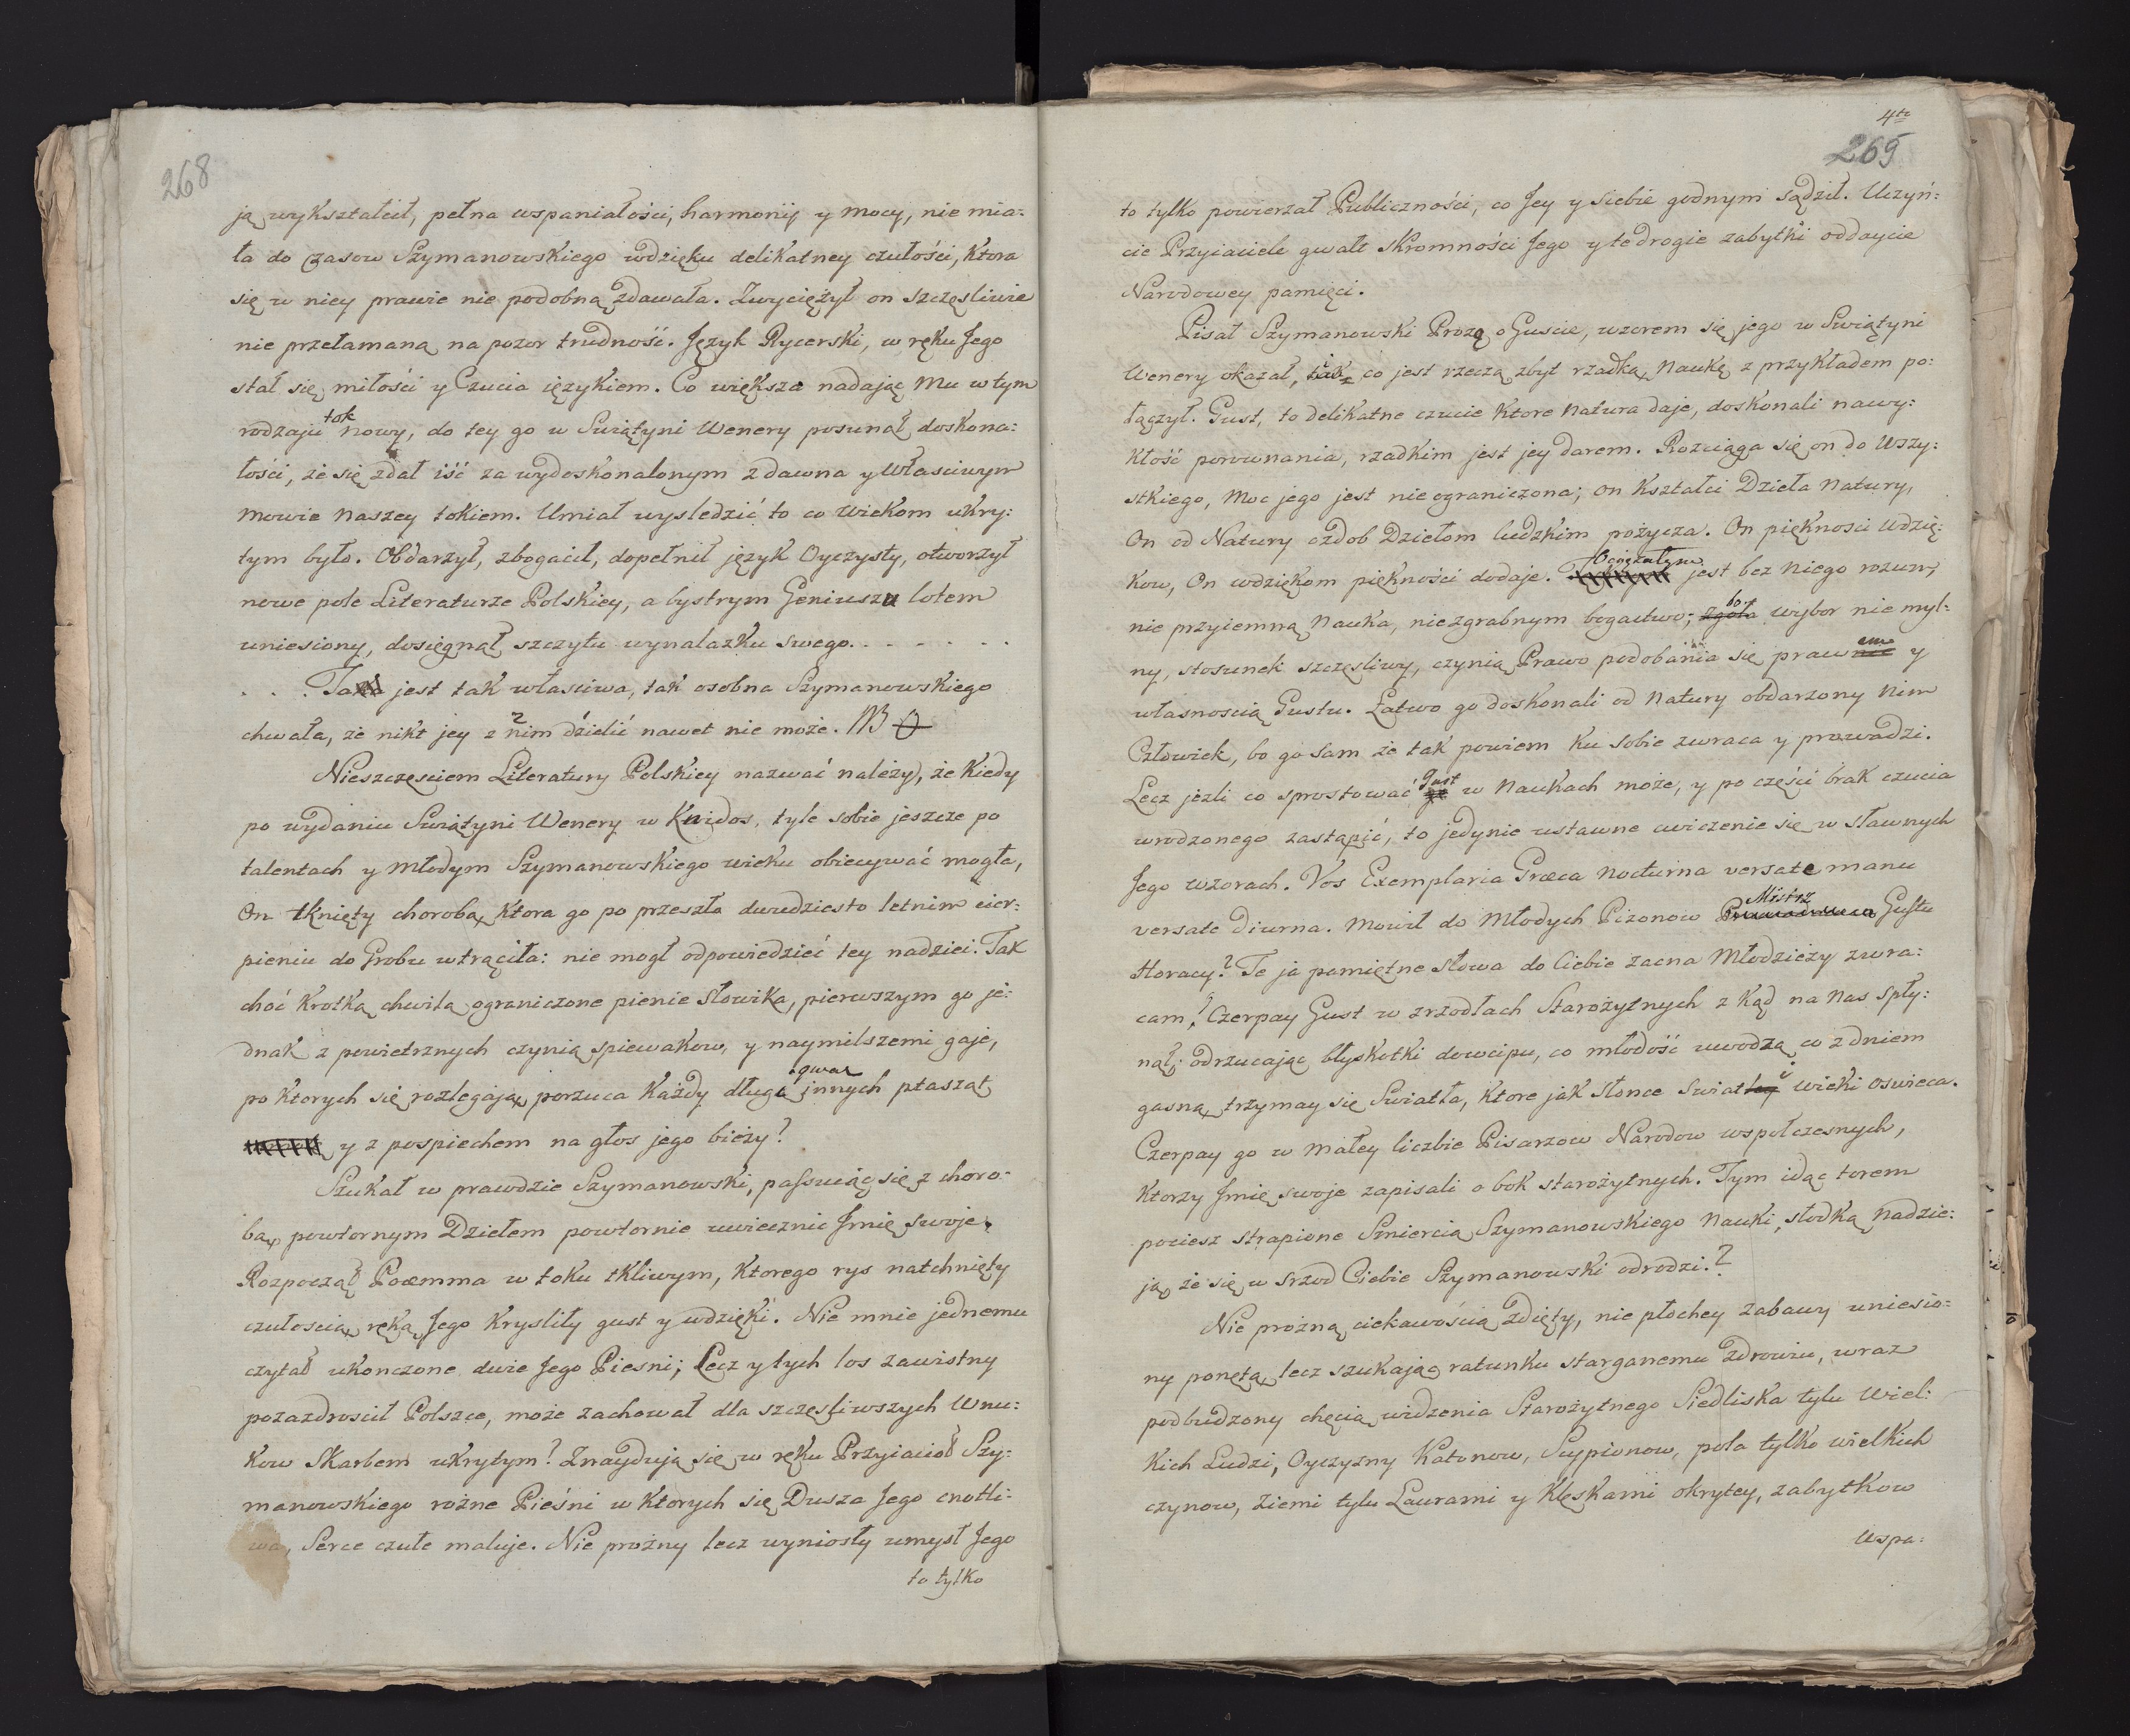 268
ją wykształcił, pełna wspaniałości, harmonij y mocy, nie mia:
ła do czasow Szymanowskiego wdzięku delikatney czułości, ktora
się w niey prawie nie podobną zdawała. Zwyciężył on szczęsliwie
nie przełamaną na pozor trudność. Język Rycerski, w ręku Jego
stał się miłości y Czucia ięzykiem. Co większa nadając mu w tym
tok
rodzaju nowy, do tey go w Swiątyni Wenery posunął doskona:
łości, że się zdał iść za wydoskonalonym z dawna y własciwym
mowie naszey tokiem. Umiał wysledzić to co wiekom ukry:
tym było. Obdarzył, zbogacił, dopełnił język Oyczysty, otworzył
nowe pole Literaturze Polskiey, a bystrym Geniuszu lotem
uniesiony, dosięgnął szczytu wynalazku swego. . . . . . . .
. . . Taka jest tak własciwa, tak osobna Szymanowskiego
chwała, że nikt jey z nim dzielić nawet nie może. NB
Nieszczęsciem Literatury Polskiey nazwać należy, że kiedy
po wydaniu Swiątyni Wenery w Knidos, tyle sobie jeszcze po
talentach y młodym Szymanowskiego wieku obiecywać mogła,
On tknięty chorobą, ktora go po przeszło dwudziesto letnim cier:
pieniu do Grobu wtrąciła: nie mogł odpowiedzieć tey nadziei. Tak
choć krotką chwilą ograniczone pienie Słowika, pierwszym go je:
dnak z powietrznych czynią spiewakow, y naymilszemi gaje,
gwar
po ktorych się rozlegają, porzuca każdy długi innych ptasząt
y z pospiechem na głos jego bieży?
Szukał w prawdzie Szymanowski, passując się z choro-
bą, powtornym Dziełem powtornie uwiecznić Imię swoje.
Rozpoczął Poemma w toku tkliwym, ktorego rys natchnięty
czułoscią, ręką Jego kryslily gust y wdzięki. Nie mnie jednemu
czytał ukonczone dwie Jego Piesni; Lecz y tych los zawistny
pozazdroscił Polszce, może zachował dla szczęsliwszych Wnu:
kow Skarbem ukrytym? Znaydują się w ręku Przyiacioł Szy:
manowskiego rożne Pieśni w ktorych się Dusza Jego cnotli-
wa, Serce czułe maluje. Nie prożny lecz wyniosły umysł Jego
to tylko
4te
269
to tylko powierzał Publiczności, co Jey y siebie godnymi sądził. Uczyń:
cie Przyiaciele gwałt skromności Jego y te drogie zabytki oddaycie
Narodowey pamięci.
Pisał Szymanowski Prozą o Guscie, wzorem się jego w Swiątyni
Wenery okazał, tak, co jest rzeczą zbyt rzadką, naukę z przykładem po:
łączył. Gust, to delikatne czucie ktore natura daje, doskonali nawy:
kłość porownania, rzadkim jest jey darem. Rozciąga się on do wszy:
stkiego, moc jego jest nie ograniczona; on kształci Dzieła natury,
On od Natury ozdob Dziełom ludzkim pożycza. On piękności wdzię:
Ociężałym
kow, On wdziękom piękności dodaje. jest bez niego rozum,
bo
nie przyiemną nauka, niezgrabnym bogactwo; zgoła wybor nie myl:
em
ny, stosunek szczęsliwy, czynią Prawo podobania się prawnie y
własnoscią Gustu. Łatwo go doskonali od natury obdarzony nim
Człowiek, bo go sam że tak powiem ku sobie zwraca y prowadzi.
gust
Lecz jezli co sprostować go w naukach może, y po części brak czucia
wrodzonego zastąpić, to jedynie ustawne cwiczenie się w sławnych
Jego wzorach. Vos Exemplaria Græca nocturna versate manu
Mistrz
versate diurna. mowił do młodych Pizonow Gustu
Horacy? Te ja pamiętne słowa do Ciebie zacna Młodzieży zwra:
cam? Czerpay Gust w zrzodłach Starożytnych z kąd na nas spły:
nął; odrzucając błyskotki dowcipu, co młodość uwodzą co z dniem
gasną, trzymay się Swiatła, ktore jak Słonce swiat y wieki oswieca.
Czerpay go w małey liczbie Pisarzow Narodow wspołczesnych,
ktorzy Imię swoje zapisali o bok starożytnych. Tym idąc torem
pociesz strapione Smiercią Szymanowskiego nauki, słodką nadzie:
ją, że się w srzod Ciebie Szymanowski odrodzi.?
Nie prożną ciekawością zdięty, nie płochey zabawy uniesio:
ny ponętą, lecz szukając ratunku starganemu zdrowiu, wraz
podbudzony chęcią widzenia Starożytnego Siedliska tylu Wiel:
kich Ludzi, Oyczyzny Katonow, Scypionow, pola tylko wielkich
czynow, ziemi tylu Laurami y klęskami okrytey, zabytkow
wspa: